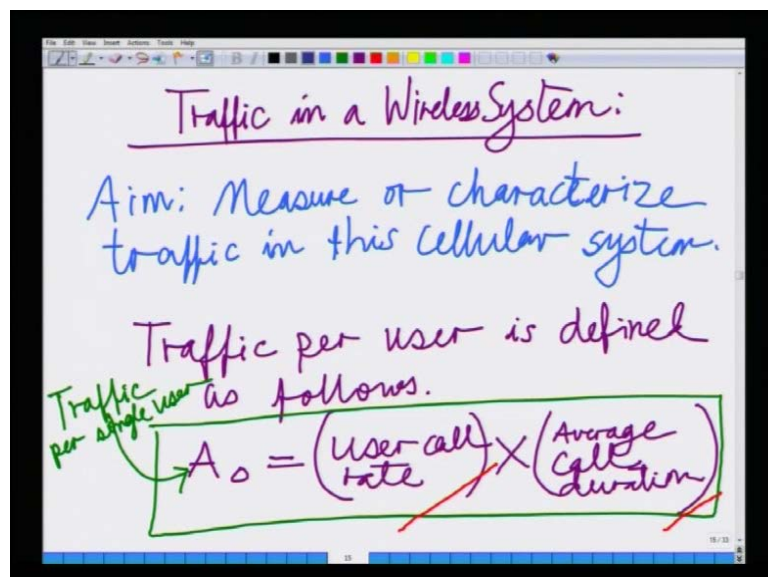 File Edit View Insert Actions Tools Help
Traffic in a Wireless System:
Aim: Measure or characterize
traffic in this cellular system.
Traffic per user is defined
as follows.
Traffic
per single user
A0 = (User call rate) X (Average call duration)
15
15/33